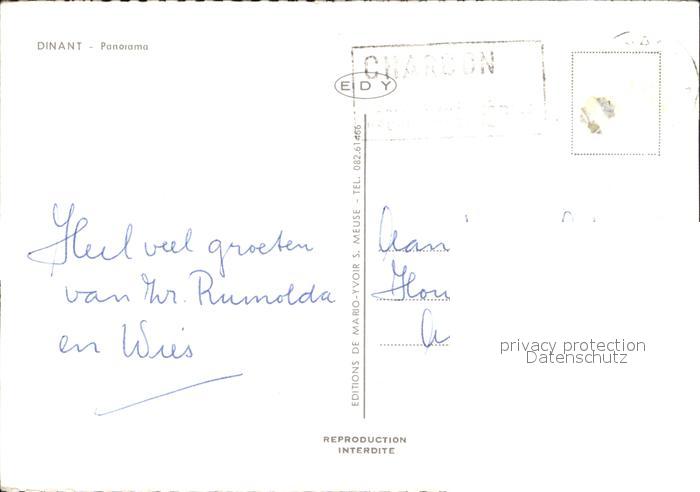 DINANT - Panorama
CHARBON
EDY
EDITIONS DE MARIO-YVOIR S. MEUSE - TEL. 082.61466
Heel veel groeten
van Zr. Rumolda
en Wies
Aan
privacy protection
Datenschutz
REPRODUCTION
INTERDITE